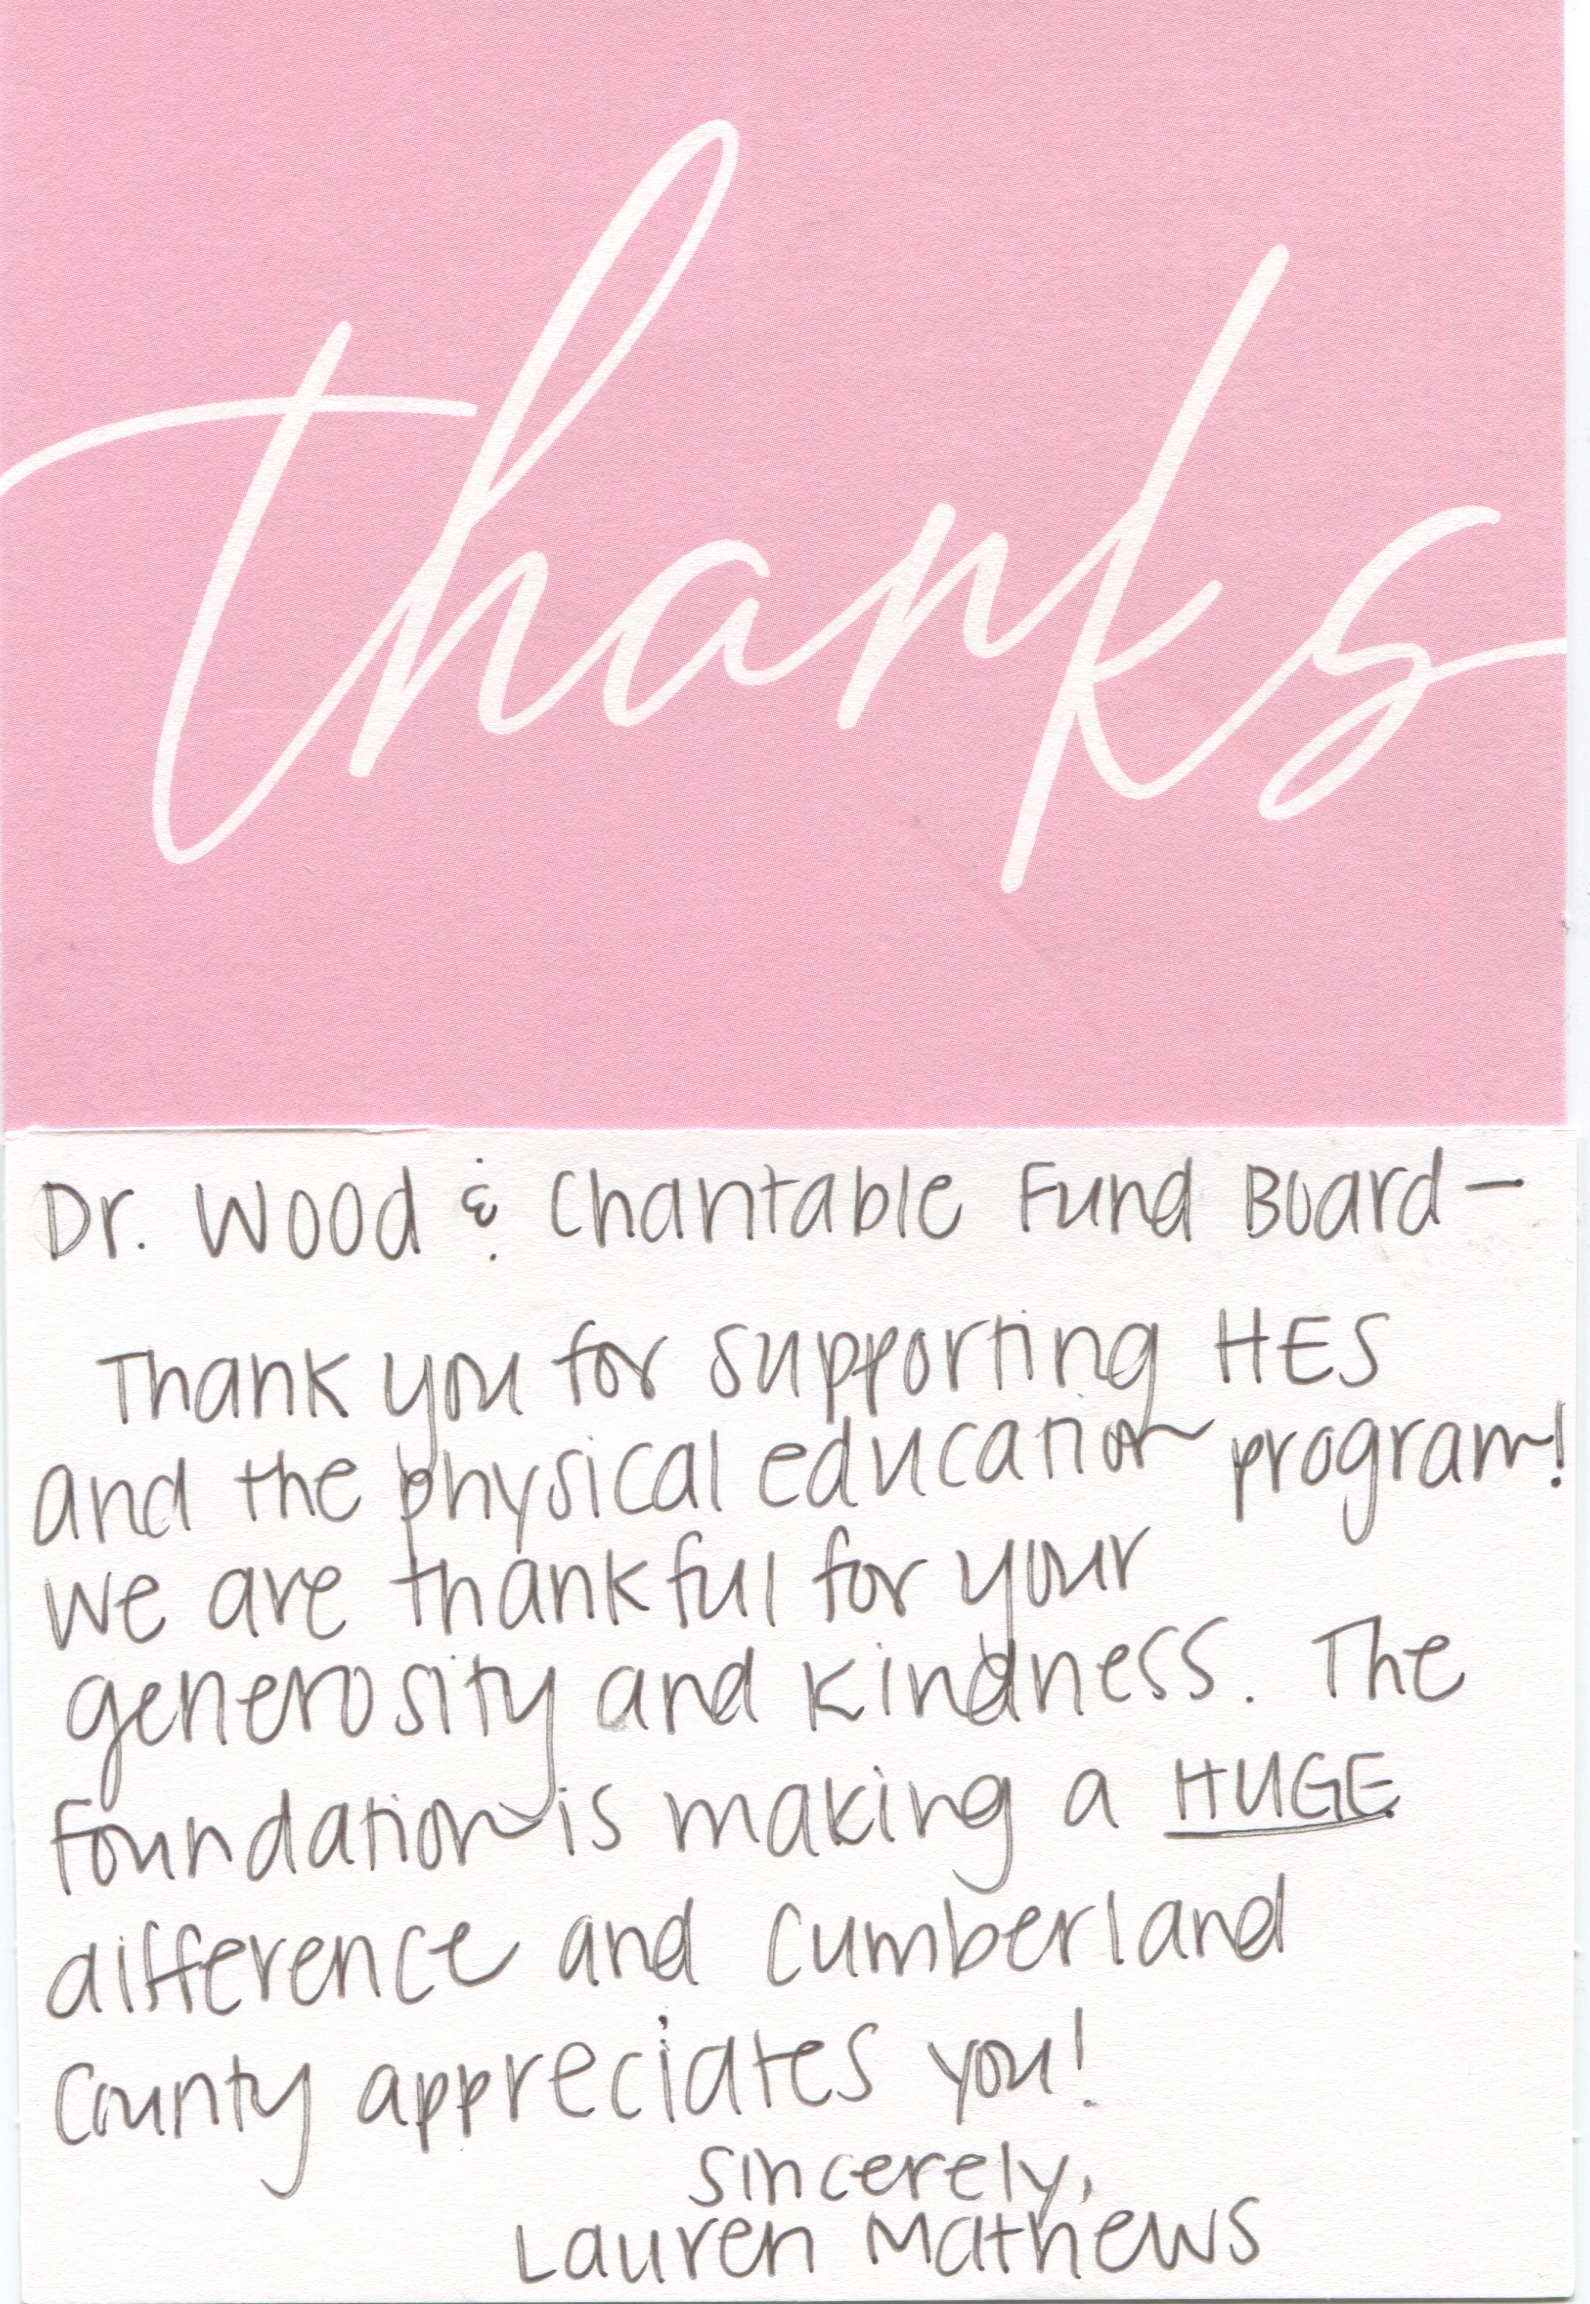 thanks
Dr. Wood & Charitable Fund Board -
Thank you for supporting HES
and the physical education program!
We are thankful for your
generosity and kindness. The
foundation is making a HUGE
difference and Cumberland
County appreciates you!
Sincerely,
Lauren Mathews